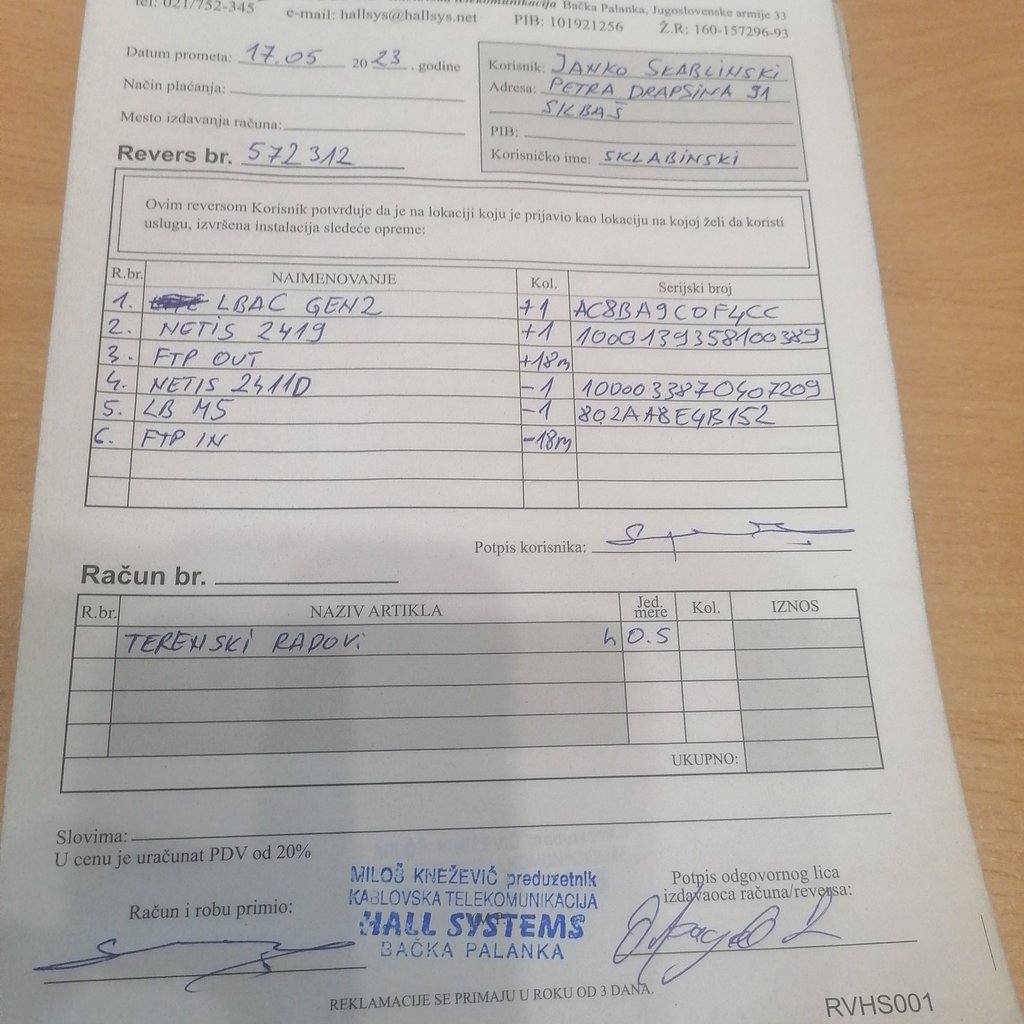 tel: 021/752-345 telekomunikacija Bačka Palanka, Jugoslovenske armije 33
e-mail: hallsys@hallsys.net PIB: 101921256 Ž.R: 160-157296-93
Datum prometa: 17.05 2023. godine
Način plaćanja:
Mesto izdavanja računa:
Revers br. 572312
Korisnik: JANKO SKABLINSKI
Adresa: PETRA DRAPSINA 91
SILBAŠ
PIB:
Korisničko ime: SKLABINSKI
Ovim reversom Korisnik potvrđuje da je na lokaciji koju je prijavio kao lokaciju na kojoj želi da koristi
uslugu, izvršena instalacija sledeće opreme:
R.br. NAIMENOVANJE Kol. Serijski broj
1. LBAC GEN2 +1 AC8BA9C0F4CC
2. NETIS 2419 +1 1000139358100389
3. FTP OUT +18m
4. NETIS 2411D -1 1000033870407209
5. LB M5 -1 802AA8E4B152
6. FTP IN -18m
Potpis korisnika:
Račun br.
R.br. NAZIV ARTIKLA Jed. mere Kol. IZNOS
TERENSKI RADOVI h 0.5
UKUPNO:
Slovima:
U cenu je uračunat PDV od 20%
Račun i robu primio:
MILOŠ KNEŽEVIĆ preduzetnik
KABLOVSKA TELEKOMUNIKACIJA
HALL SYSTEMS
BAČKA PALANKA
Potpis odgovornog lica
izdavaoca računa/reversa:
REKLAMACIJE SE PRIMAJU U ROKU OD 3 DANA.
RVHS001